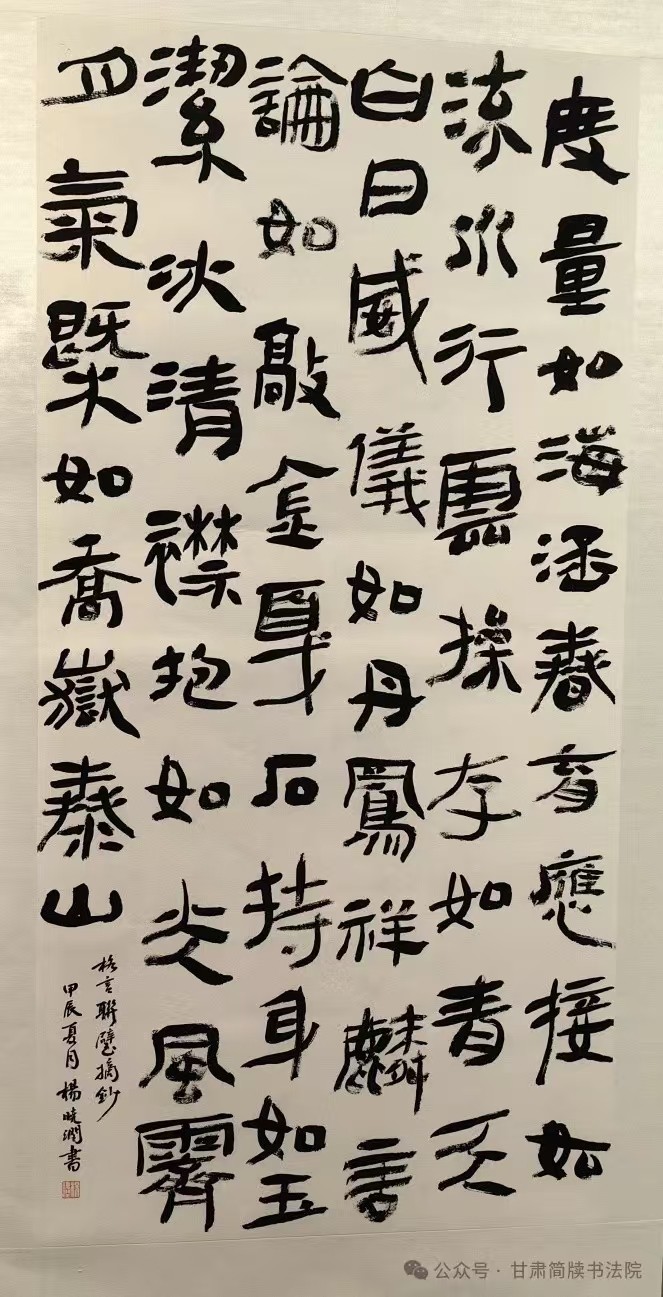 度量如海涵春育應接如
流水行雲操存如青天
白日威儀如丹鳳祥麟言
論如敲金戛石持身如玉
潔冰清襟抱如光風霽
月氣槩如喬嶽泰山
格言聯璧摘鈔
甲辰夏月楊曉澗書
公众号·甘肃简牍书法院